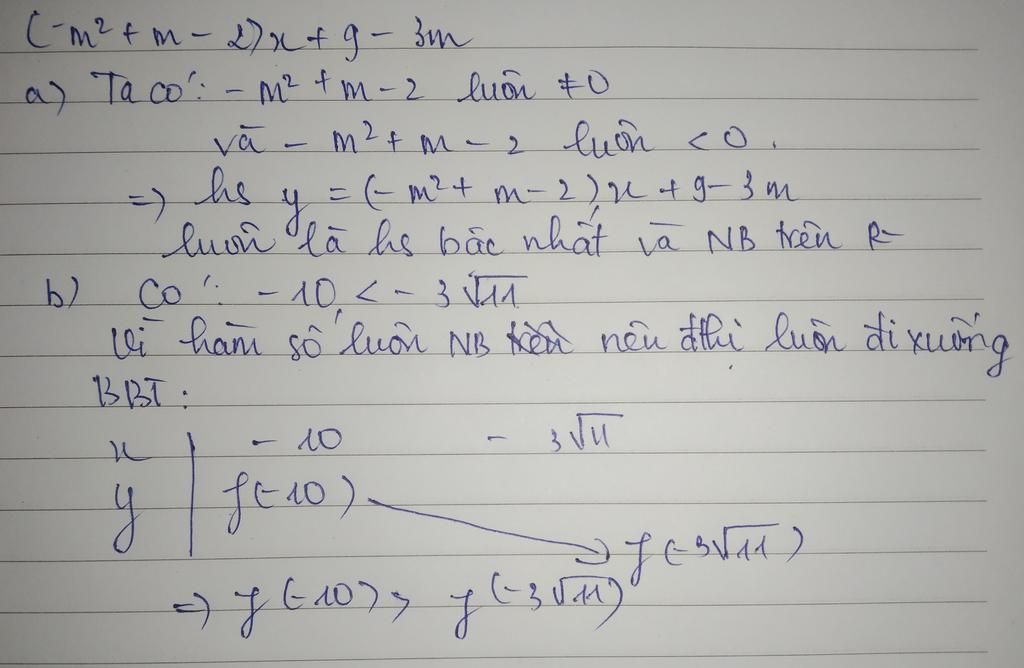 (-m² + m - 2)x + 9 - 3m
a) Ta có: - m² + m - 2 luôn ≠ 0
và - m² + m - 2 luôn < 0.
=> hs y = (- m² + m - 2)x + 9 - 3m
luôn là hs bậc nhất và NB trên R
b) Có: - 10 < - 3√11
Vì hàm số luôn NB nên đthị luôn đi xuống
BBT:
x | - 10 - 3√11
y | f(-10)
f(-3√11)
=> f(-10) > f(-3√11)